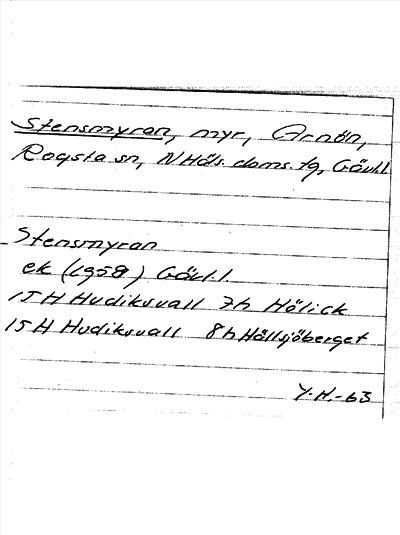 Stensmyran, myr, Arnön,
Rogsta sn, NHäls. doms. tg, Gävl.l.
Stensmyran
ek (1958) Gävl.l.
15H Hudiksvall 7h Hölick
15H Hudiksvall 8h Hällsjöberget
Y.H.-63